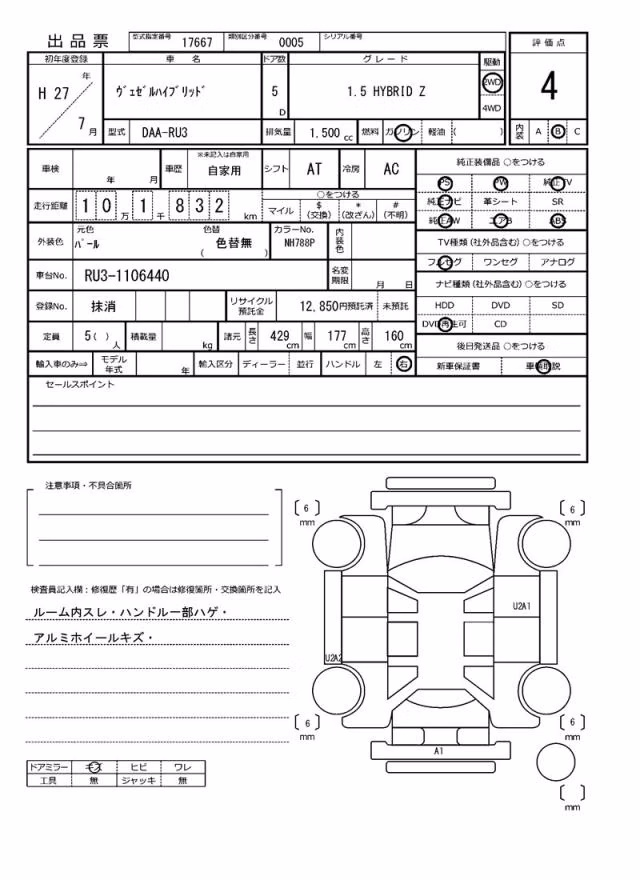 出品票 型式指定番号 17667 類別区分番号 0005 シリアル番号
評価点
4
内装 A B C
初年度登録 車名 ドア数 グレード 駆動
H 27 年 7 月 ヴェゼルハイブリッド 5 D 1.5 HYBRID Z 2WD 4WD
型式 DAA-RU3 排気量 1.500 cc 燃料 ガソリン 軽油 ( )
車検 年 月 車歴 ※未記入は自家用 自家用 シフト AT 冷房 AC
純正装備品 ○をつける
PS PW 純正TV
純正ナビ 革シート SR
純正AW エアB ABS
走行距離 1 0 万 1 千 8 3 2 km ○をつける マイル $(交換) *(改ざん) #(不明)
外装色 元色 パール 色替 色替無 ( ) カラーNo. NH788P 内装色
TV種類(社外品含む) ○をつける
フルセグ ワンセグ アナログ
車台No. RU3-1106440 名変期限 月 日
ナビ種類(社外品含む) ○をつける
HDD DVD SD
DVD再生可 CD
登録No. 抹消 リサイクル預託金 12,850円預託済 未預託
定員 5( ) 人 積載量 kg 諸元 長さ 429 cm 幅 177 cm 高さ 160 cm
後日発送品 ○をつける
新車保証書 車輌取説
輸入車のみ⇒ モデル年式 年 輸入区分 ディーラー 並行 ハンドル 左 右
セールスポイント
注意事項・不具合箇所
検査員記入欄：修復歴「有」の場合は修復箇所・交換箇所を記入
ルーム内スレ・ハンドル一部ハゲ・
アルミホイールキズ・
ドアミラー キズ ヒビ ワレ
工具 無 ジャッキ 無
[ 6 ] mm
[ 6 ] mm
U2A1
U2A2
[ 6 ] mm
[ 6 ] mm
A1
[ ] mm